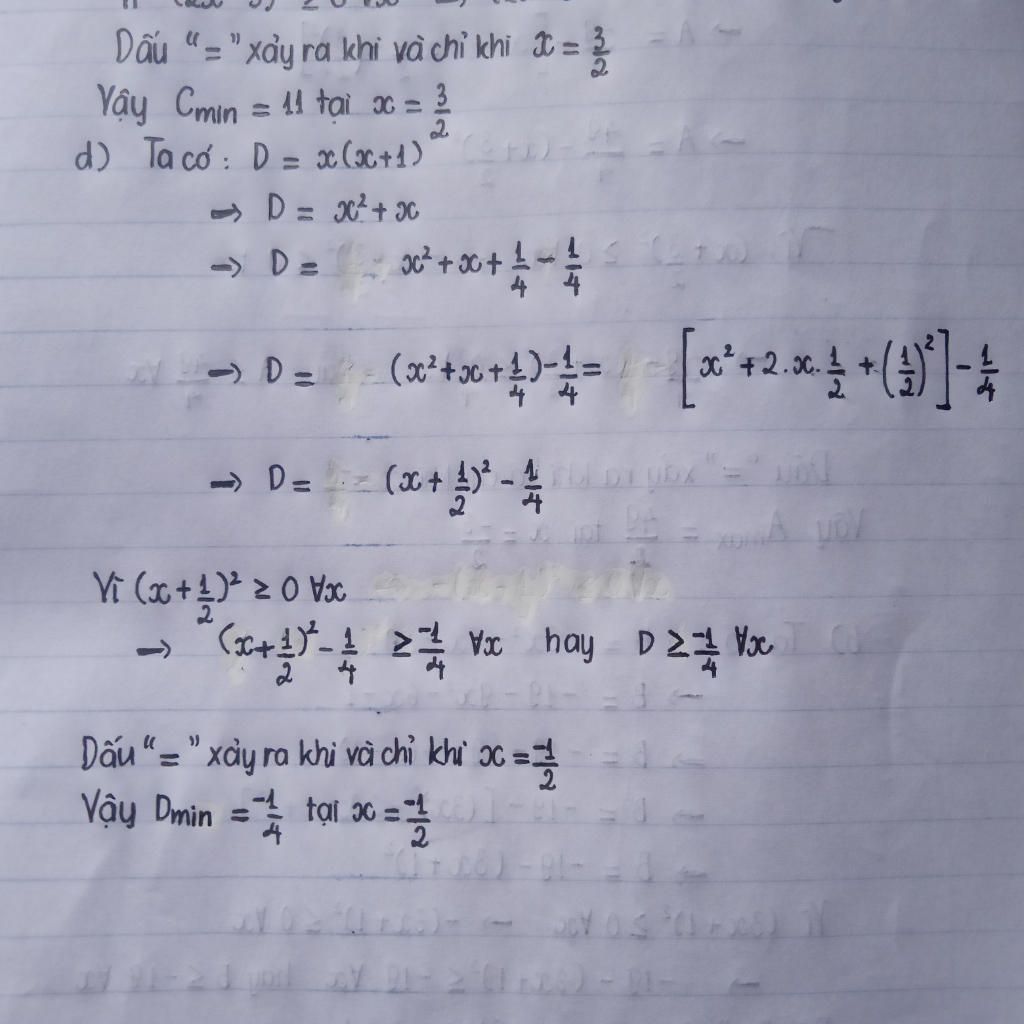 Dấu “=” xảy ra khi và chỉ khi x = 3/2
Vậy Cmin = 11 tại x = 3/2
d) Ta có: D = x(x+1)
→ D = x² + x
→ D = x² + x + 1/4 - 1/4
→ D = (x² + x + 1/4) - 1/4 = [x² + 2.x.1/2 + (1/2)²] - 1/4
→ D = (x + 1/2)² - 1/4
Vì (x + 1/2)² ≥ 0 ∀x
→ (x + 1/2)² - 1/4 ≥ -1/4 ∀x hay D ≥ -1/4 ∀x
Dấu “=” xảy ra khi và chỉ khi x = -1/2
Vậy Dmin = -1/4 tại x = -1/2